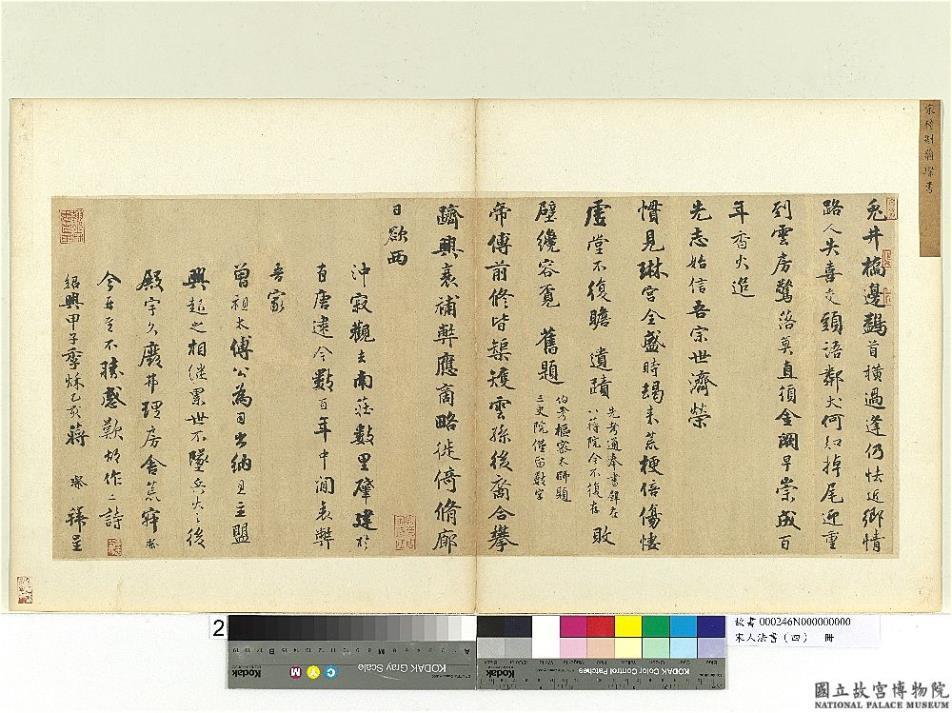 兎井橋邊鷁首橫過逢仍怯近鄉情
路人失喜交頭語鄰犬何知掉尾迎重
到雲房驚落莫直須金闕早崇成百
年香火造
先志始信吾宗世濟榮
慣見琳宮全盛時朅來荒梗倍傷悽
虛堂不復瞻 遺蹟
先考通奉書
院今不復存
敗
壁纔容覓 舊題
伯考樞密太師題
三史院僅留數字
帝傅前修皆榘矱雲孫後裔合攀
躋興衰補弊應商略徙倚脩廊
日欲西
沖寂觀去南莊數里肇建於
有唐逮今數百年中間衰弊
吾家
曾祖太傅公為
主盟
興起之相繼累世不墜兵火之後
殿宇久廢井理房舍荒
今再至不勝感歎故作二詩
紹興甲子季秋乙亥蔣 璨 拜呈
故書000246N000000000
宋人法書(四) 冊
2
KODAK Gray Scale
KODAK Color Control Patches
Kodak
國立故宮博物院
NATIONAL PALACE MUSEUM